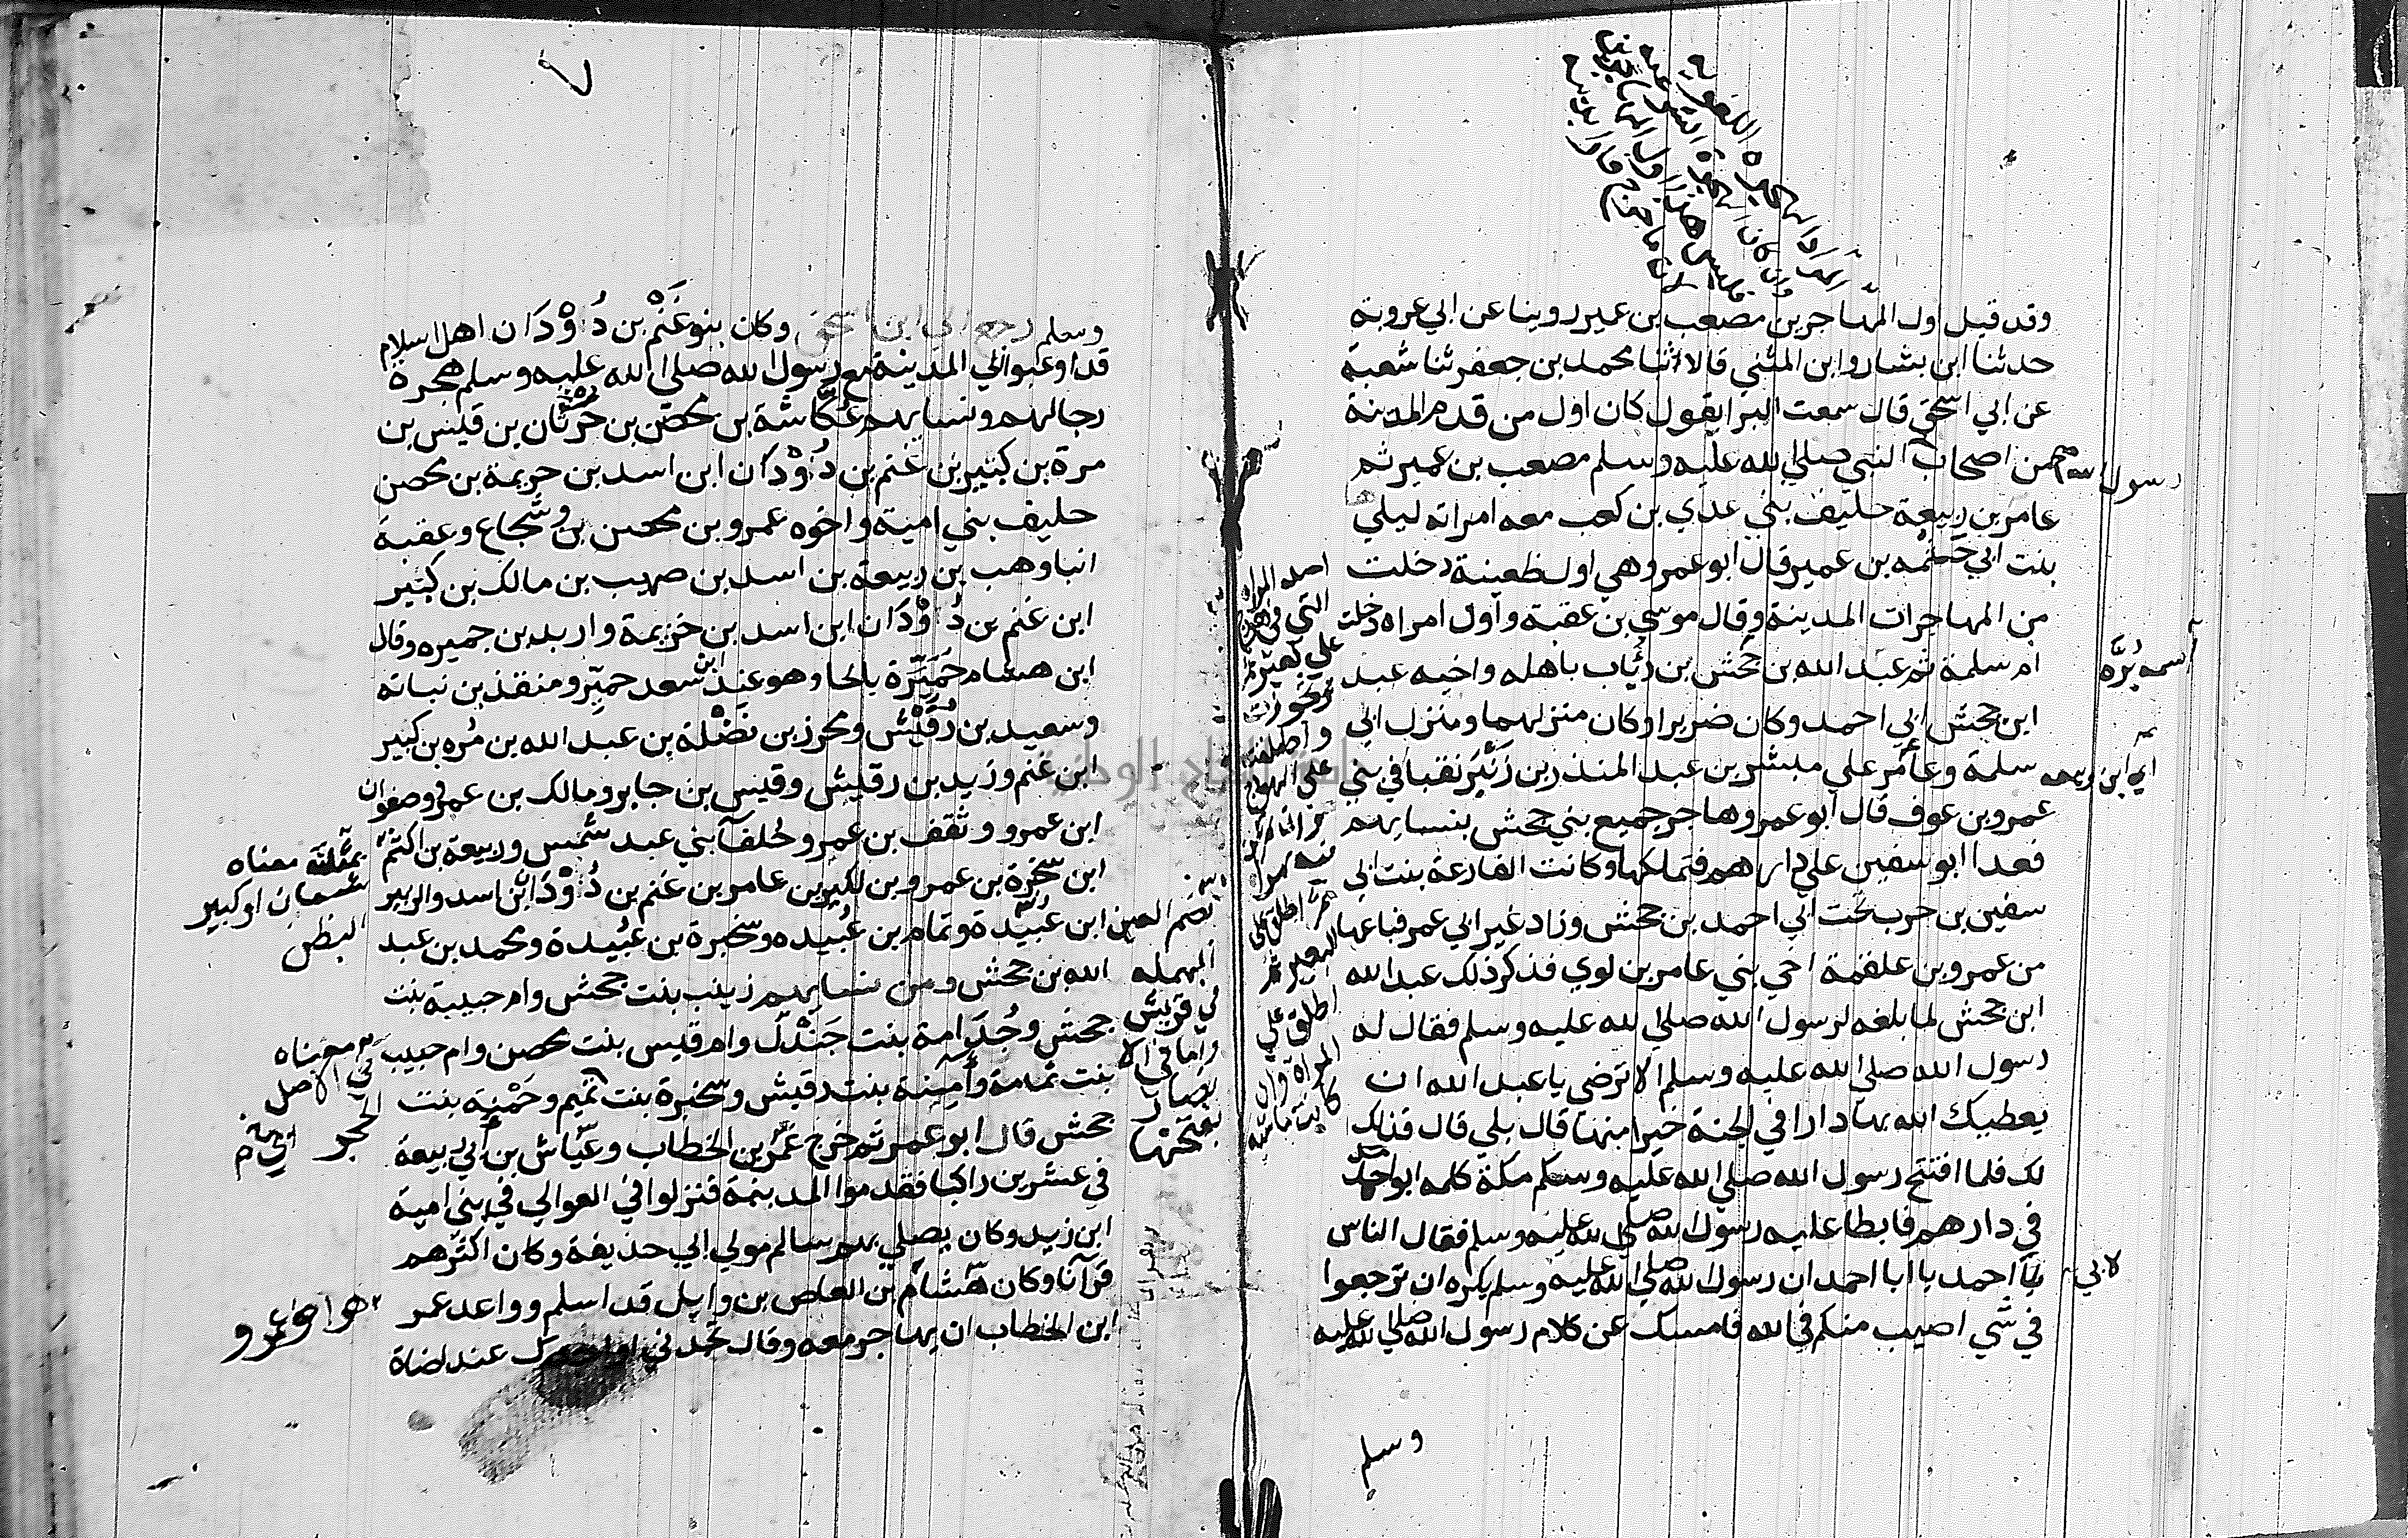 وقد قيل اول المهاجرين مصعب بن عمير روينا عن ابي عروبة
حدثنا ابن بشار وابن المثني قالا ثنا محمد بن جعفر ثنا شعبة
عن ابي اسحق قال سمعت البرا يقول كان اول من قدم المدينة
من اصحاب النبي صلي الله عليه وسلم مصعب بن عمير ثم
رسول الله
عامر بن ربيعة حليف بني عدي بن كعب معه امراته ليلي
بنت ابي حثمه بن عمير قال ابو عمر وهي اول ظعينة دخلت
من المهاجرات المدينة وقال موسي بن عقبة واول امراه دخلت
ام سلمة ثم عبد الله بن جحش بن رئاب باهله واخيه عبد
اسمه بُرَّه
ابن جحش ابي احمد وكان ضريرا وكان منزلهما ومنزل ابي
سلمة وعامر علي مبشر بن عبد المنذر بن زَنْبَر بقبا في بني
اي ابن ربيعه
عمرو بن عوف قال ابو عمر وهاجر جميع بني جحش بنسايهم
فعدا ابو سفين علي دارهم فتملكها وكانت الفارعة بنت ابي
سفين بن حرب تحت ابي احمد بن جحش وزاد غير ابي عمر فباعها
من عمرو بن علقمة اخي بني عامر بن لوي فذكر ذلك عبد الله
ابن جحش لما بلغه لرسول الله صلي الله عليه وسلم فقال له
رسول الله صلي الله عليه وسلم الا ترضي يا عبد الله ان
يعطيك الله بها دارا في الجنة خيرا منها قال بلي قال فذلك
لك فلما افتتح رسول الله صلي الله عليه وسلم مكة كلمه ابو احمد
في دارهم فابطا عليه رسول الله صلي الله عليه وسلم فقال الناس
لابي
احمد يا ابا احمد ان رسول الله صلي الله عليه وسلم يكره ان ترجعوا
في شي اصيب منكم في الله فامسك عن كلام رسول الله صلي الله عليه
وسلم
اصله المراه
التي في
علي بعير ثم
اطلق علي
البعير ثم
اطلق علي
المراة وان
كانت ماشيه
وسلم رجع الي ابن اسحق وكان بنو غَنْم بن دُوْدَان اهل اسلام
قد اوعبوا الي المدينة مع رسول الله صلي الله عليه وسلم هجرة
رجالهم ونسايهم عكاشة بن محصن بن حرثان بن قيس بن
مرة بن كبير بن غنم بن دُوْدَان ابن اسد بن خزيمة بن محصن
حليف بني امية واخوه عمرو بن محصن بن وشجاع وعقبة
ابنا وهب بن ربيعة بن اسد بن صهيب بن مالك بن كبير
ابن غنم بن دُوْدَان ابن اسد بن خزيمة واربد بن حميره وقال
ابن هشام حُمَيِّرَة بالحا وهو عند ابن سعد حميّر ومنقذ بن نباته
وسعيد بن رُقَيْش ومحرز بن نَضْلة بن عبد الله بن مُره بن كبير
ابن غنم وزيد بن رقيش وقيس بن جابر ومالك بن عمرو وصفوان
ابن عمرو وثقف بن عمرو حلفآ بني عبد شمس وربيعة بن اكثم
بمثلثه معناه
شبعان او كبير
البطن
ابن سخبرة بن عمرو بن لكيز بن عامر بن غنم بن دُوْدَان بن اسد والزبير
ابن عُبَيدة وتمام بن عُبيده وسخبرة بن عُبيدة ومحمد بن عبد
بضم العين
المهمله
في قريش
واما في الا
نصار
بفتحها
الله بن جحش ومن نسايهم زينب بنت جحش وام حبيبة بنت
جحش وجُدَامة بنت جَنْدَل وام قيس بنت محصن وام حبيب
معناه
في الاصل
الحجر
بنت ثمامة وآمنة بنت رقيش وسخبرة بنت تميم وحَمْنه بنت
جحش قال ابو عمر ثم خرج عُمر بن الخطاب وعيّاش بن ابي ربيعة
في عشرين راكبا فقدموا المدينة فنزلوا في العوالي في بني امية
ابن زيد وكان يصلي بهم سالم مولي ابي حذيفة وكان اكثرهم
قرآنا وكان هشام بن العاص بن وايل قد اسلم وواعد عمر
هو اخو عمرو
ابن الخطاب ان يهاجر معه وقال تجدني عند اضاة